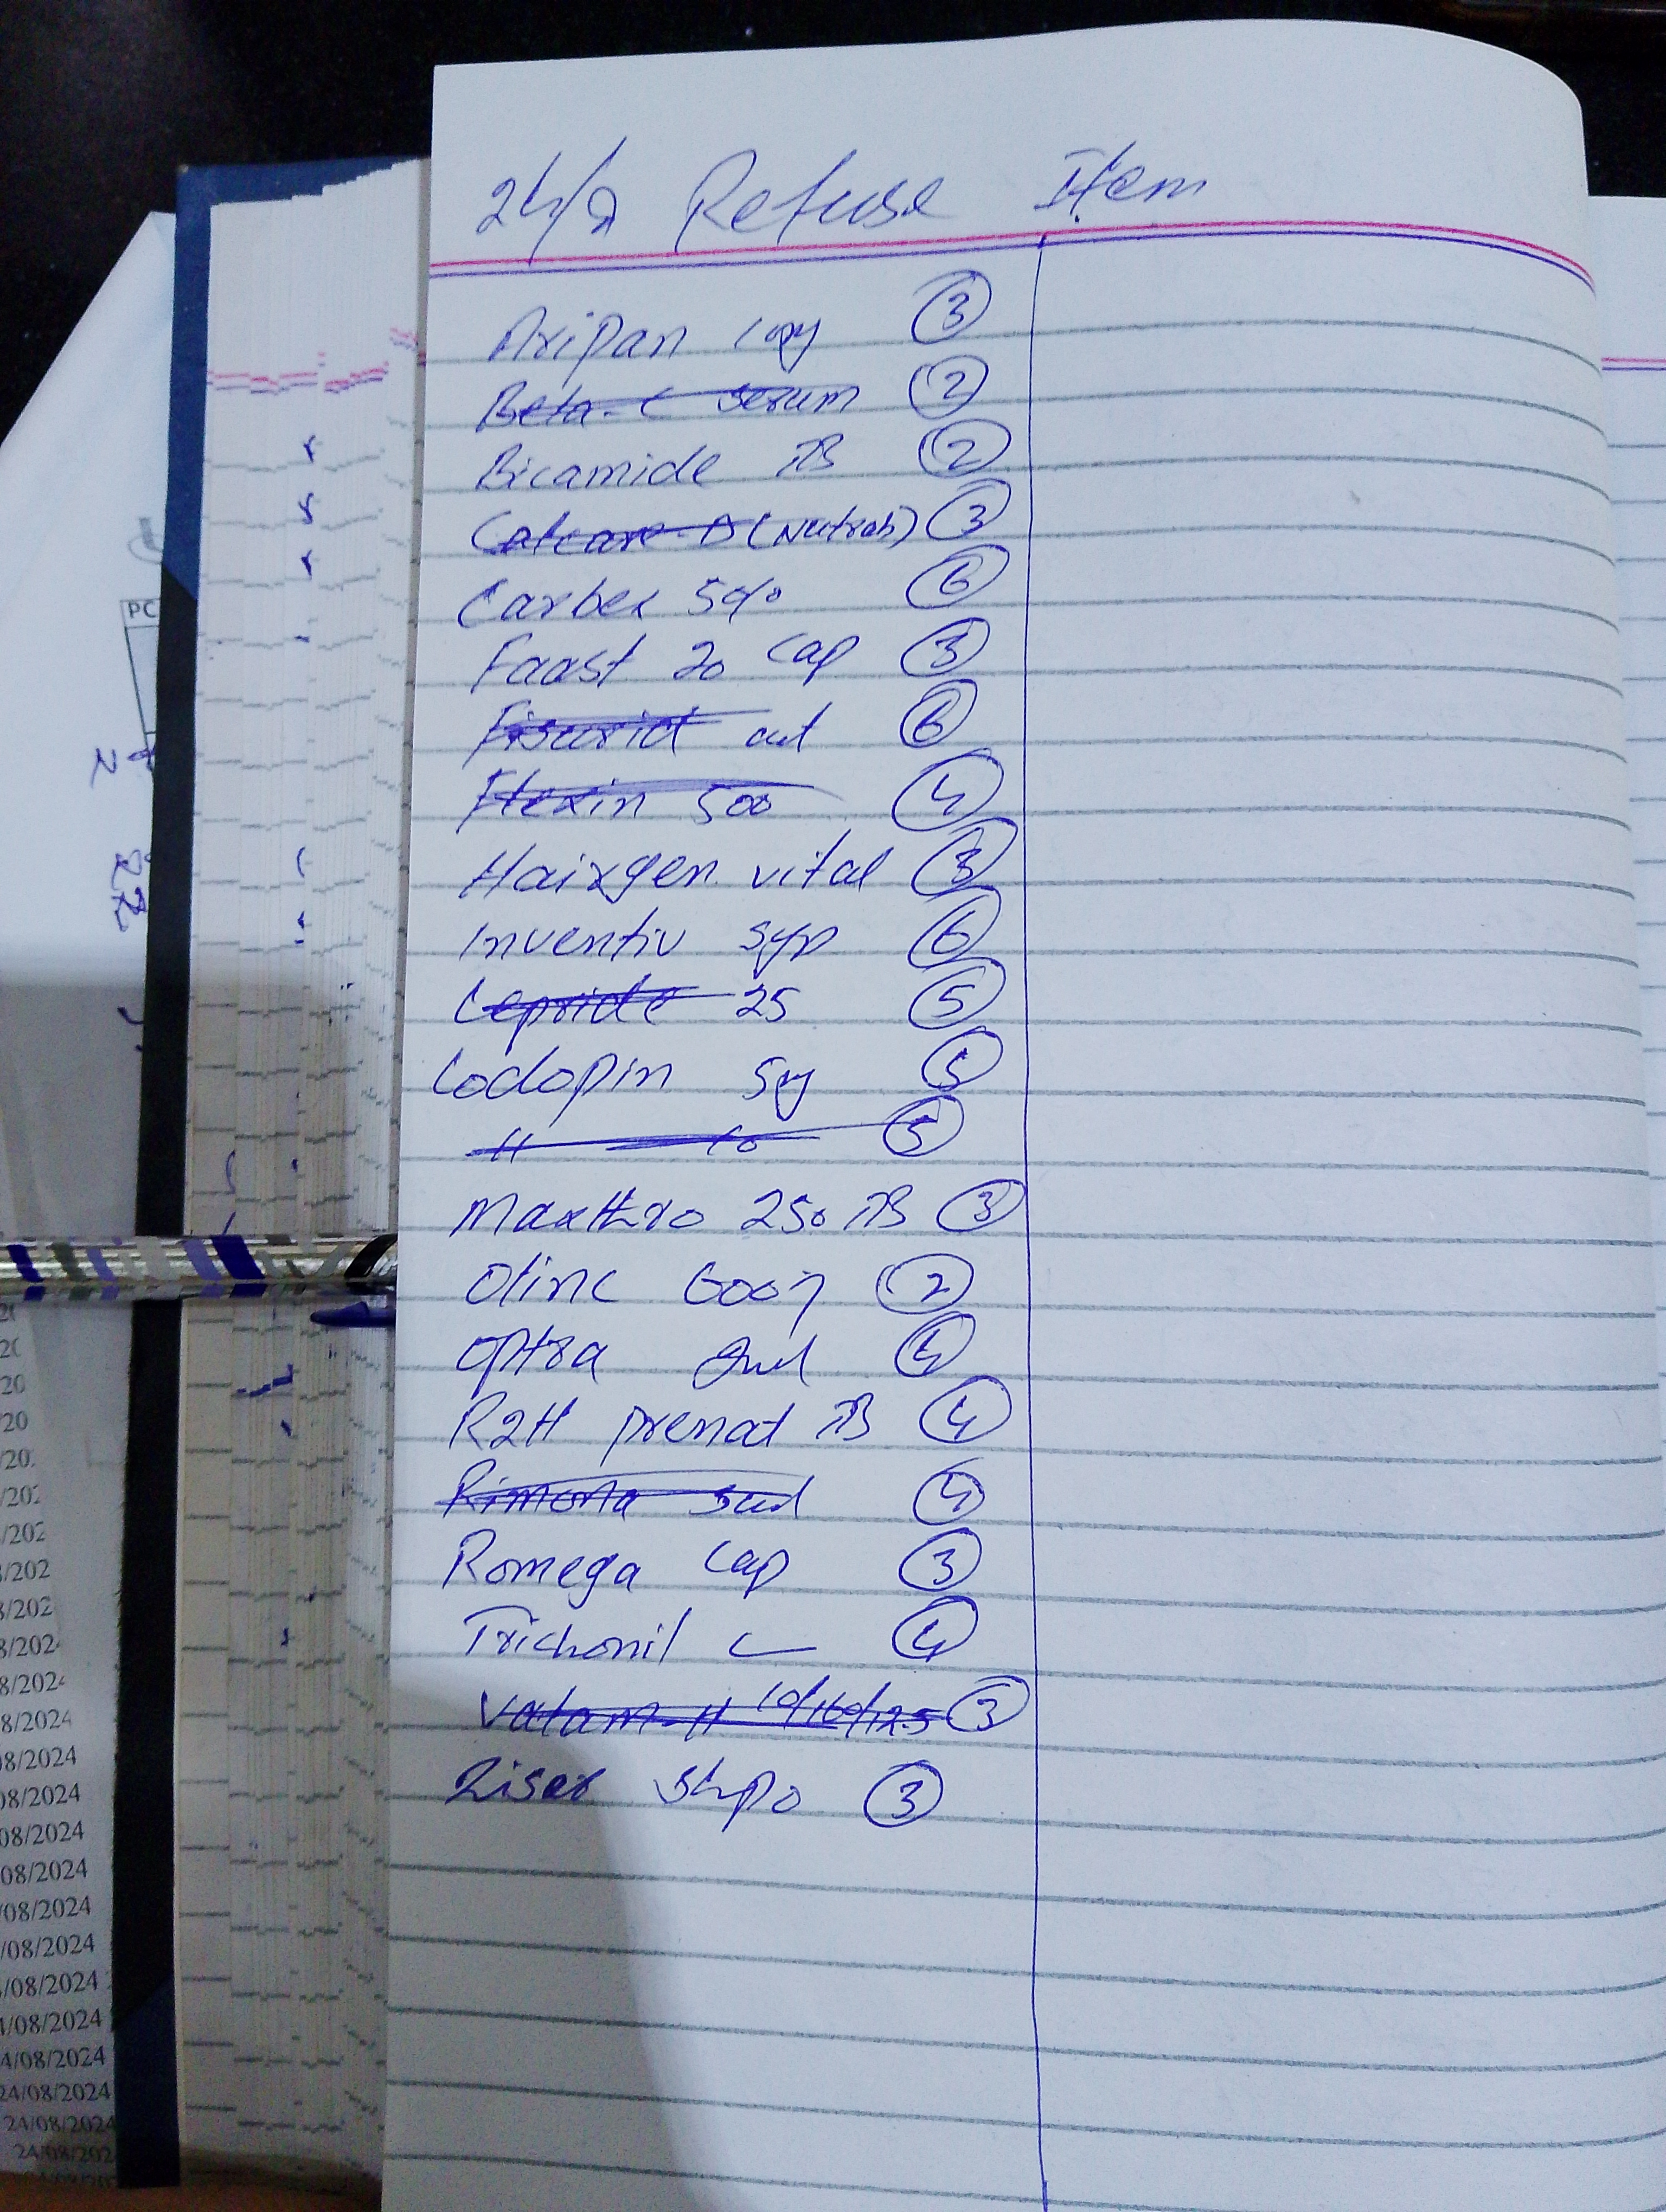 24/8 Refuse Item
Aripan syp 3
Beta-C serum 2
Bicamide TB 2
Calcare-D (Nutrah) 3
Carbex 500 6
Faast 20 Cap 3
Fisurid oint 6
Flexin 500 4
Hairgen vital 3
Inventiv syp 6
Lepride 25 5
Lodopin 5mg 5
11 10 5
Maxthro 250 TB 3
Olinc 600g 2
Optra 4
R2H prenat TB 4
Rimona 4
Romega Cap 3
Trichonil 4
Valtam-H 10/160/12.5 3
Risek 3
PC
2
22
/08/2024
08/2024
08/2024
08/2024
08/2024
/08/2024
/08/2024
/08/2024
4/08/2024
4/08/2024
24/08/2024
24/08/2024
24/08/202